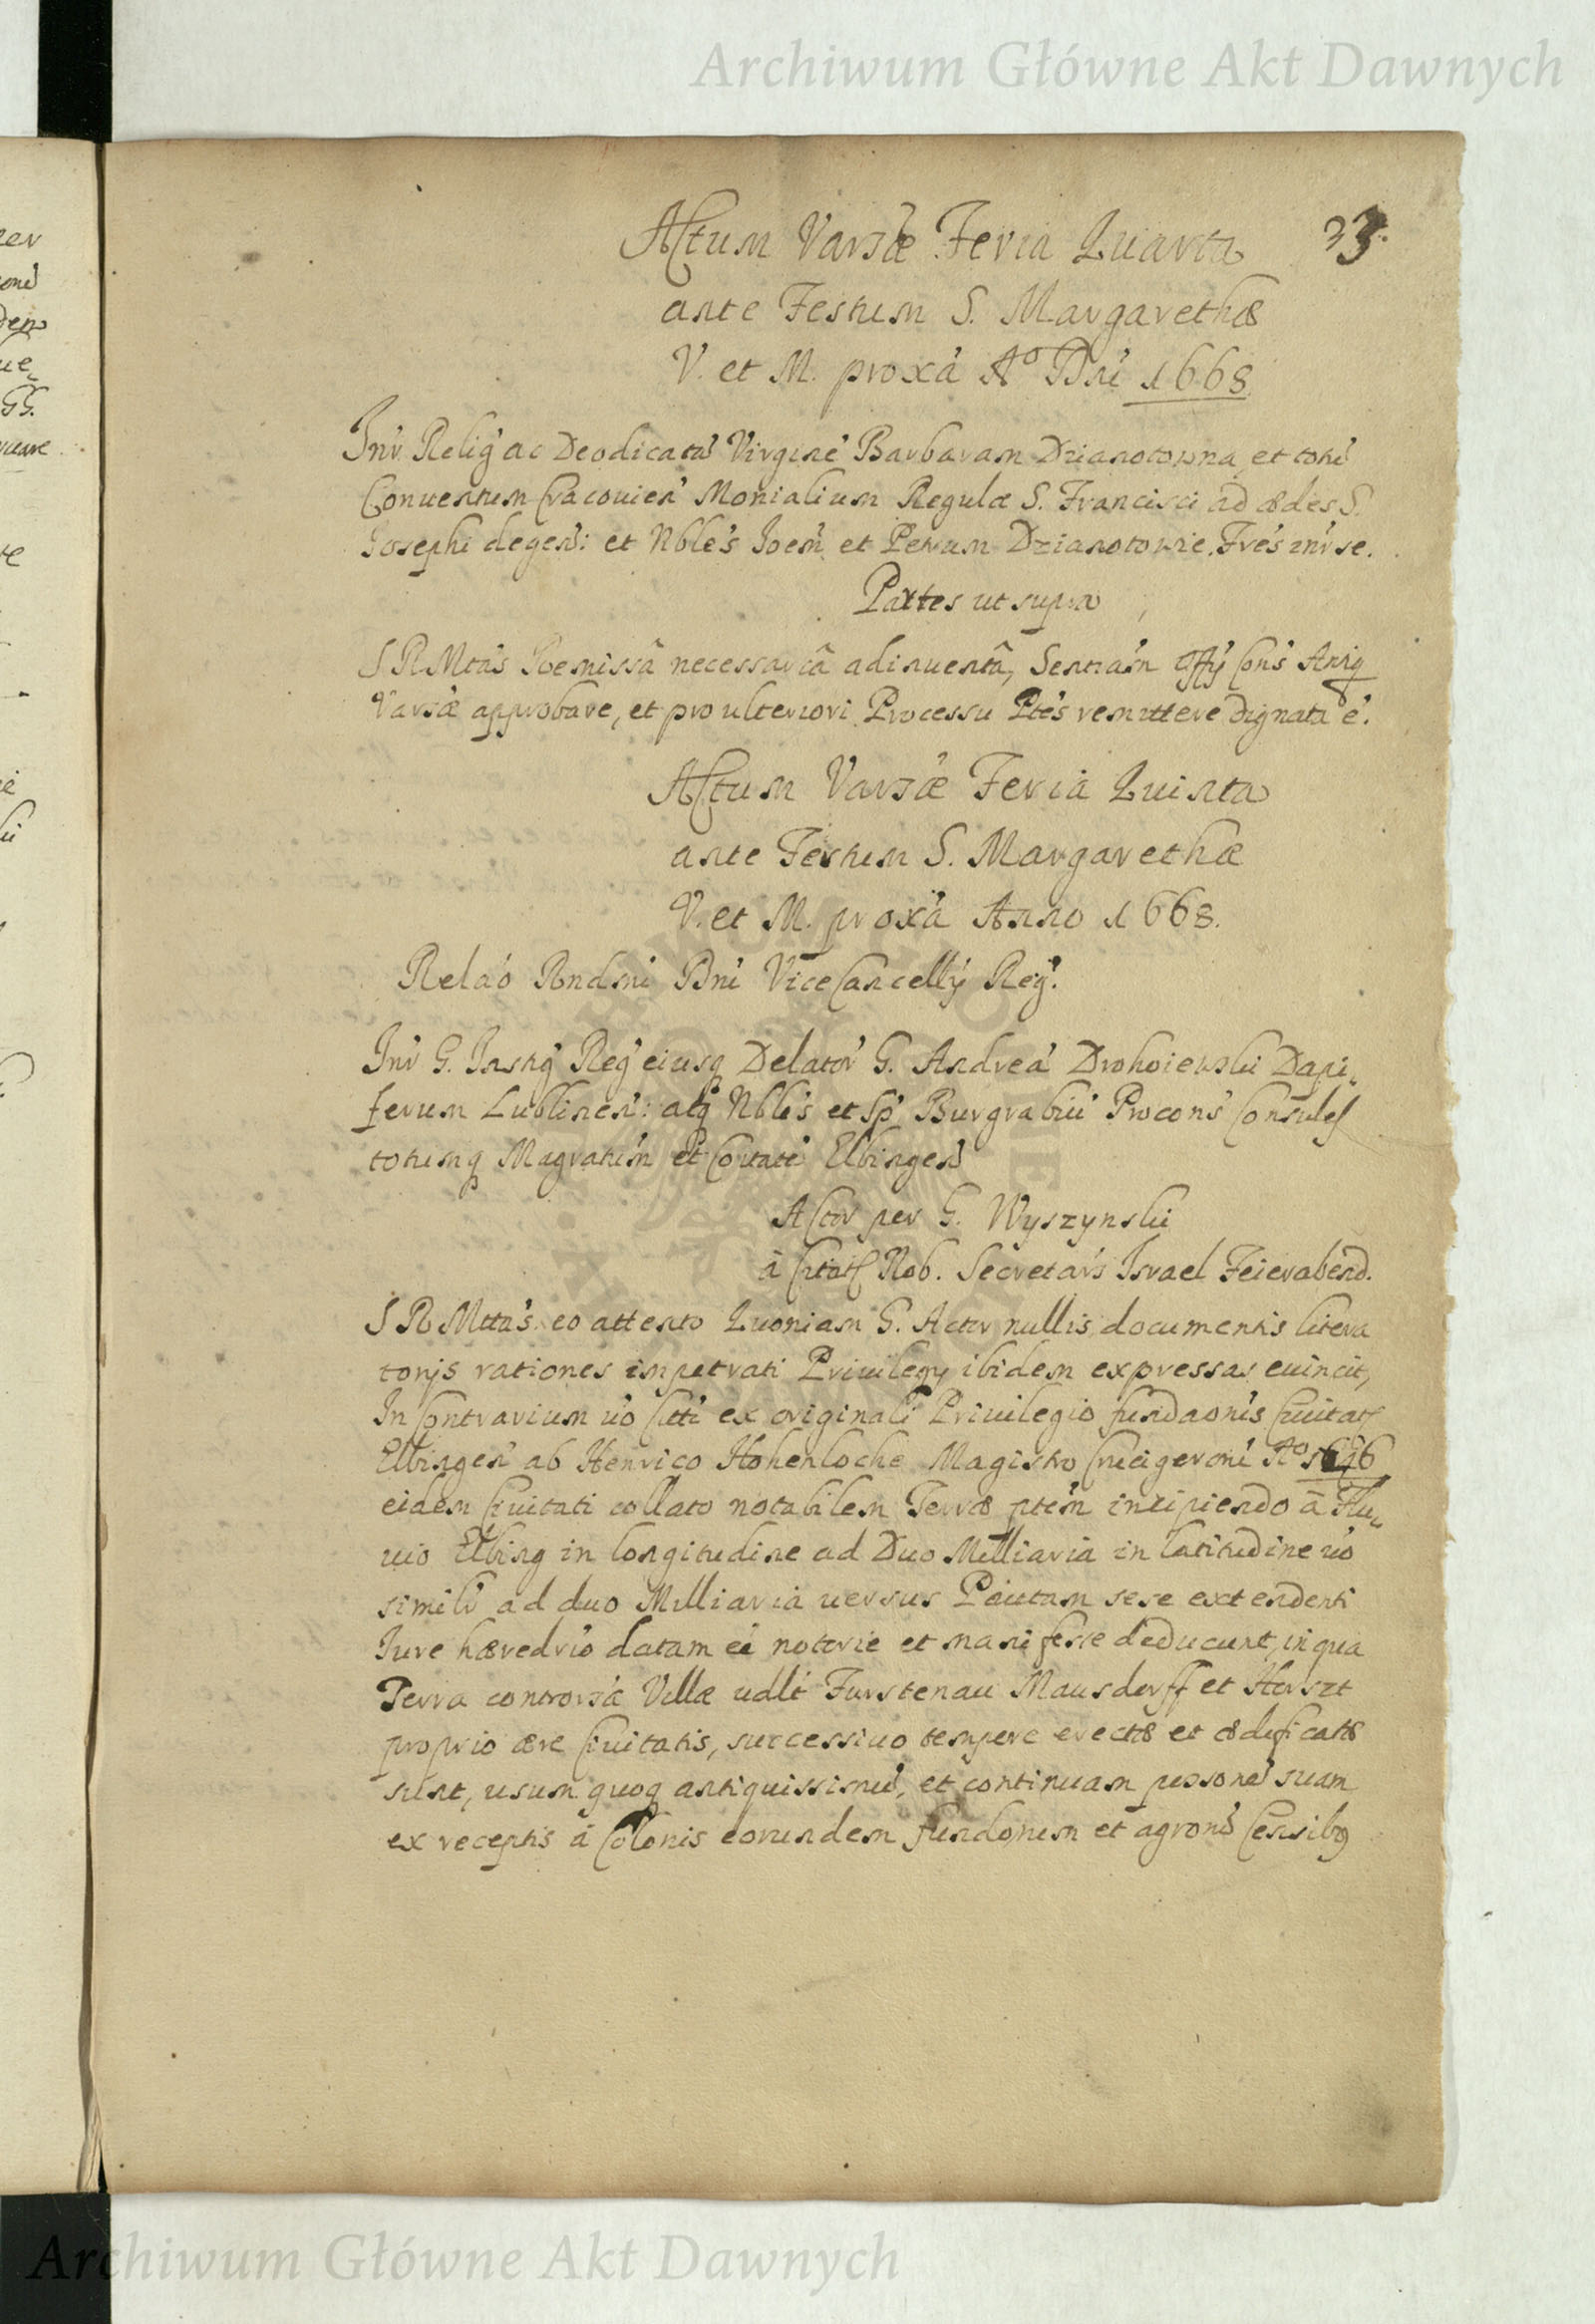 Archiwum Główne Akt Dawnych
33.
Actum Varsae Feria Quarta
ante Festum S. Margarethae
V. et M. proxa Ao Dni 1668
Int Relig ac Deodicata Virgine Barbaram Dzianotowna et totu
Conuentum Cracouien Monialium Regulae S. Francisci ad aedes S.
Josephi degen: et Nbles Joem et Petrum Dzianotowie Fres int se.
Partes ut supra
S R Mtas Remissa necessaria adinuenta, Sentiam Offy Cons Antiq
Varsae approbare, et pro ulteriori Processu Ptes remittere dignata e.
Actum Varsae Feria Quinta
ante Festum S. Margarethae
V. et M. proxa Anno 1668.
Relao Rndmi Dni ViceCancelly Reg.
Int G. Instig Reg eiusq Delator G. Andrea Drohoiewski Dapi
ferum Lublinen: atq Nbles et Sp Burgrabiu Procons Consules
totumq Magratum et Coitate Elbingen
Actor per G. Wyszynski
a Citatis Nob. Secretars Israel Feierabend.
S R Mttas eo attento Quoniam G. Actor nullis documentis litera
torys rationes impetrati Priuilegy ibidem expressas euincit,
In Contrarium uo Citi ex originali Priuilegio fundaonis Ciuitatis
Elbingen ab Henrico Hohenloche Magistro Crucigeroru Ao
eidem Ciuitati collato notabilem Terrae ptem incipiendo a Flu
uio Elbing in longitudine ad Duo Milliaria in latitudine uo
simili ad duo Milliaria uersus sese extendenti
Jure haeredrio datam ei notorie et manifeste deducunt, in qua
Terra controrsa Villae udlt Furstenau Mausdorff et Horszt
proprio aere Ciuitatis, successiuo tempore erectae et aedificatae
sunt, usum quoq antiquissimu, et continuam possone suam
ex receptis a Colonis eorundem fundorum et agroru Censibq
Archiwum Główne Akt Dawnych